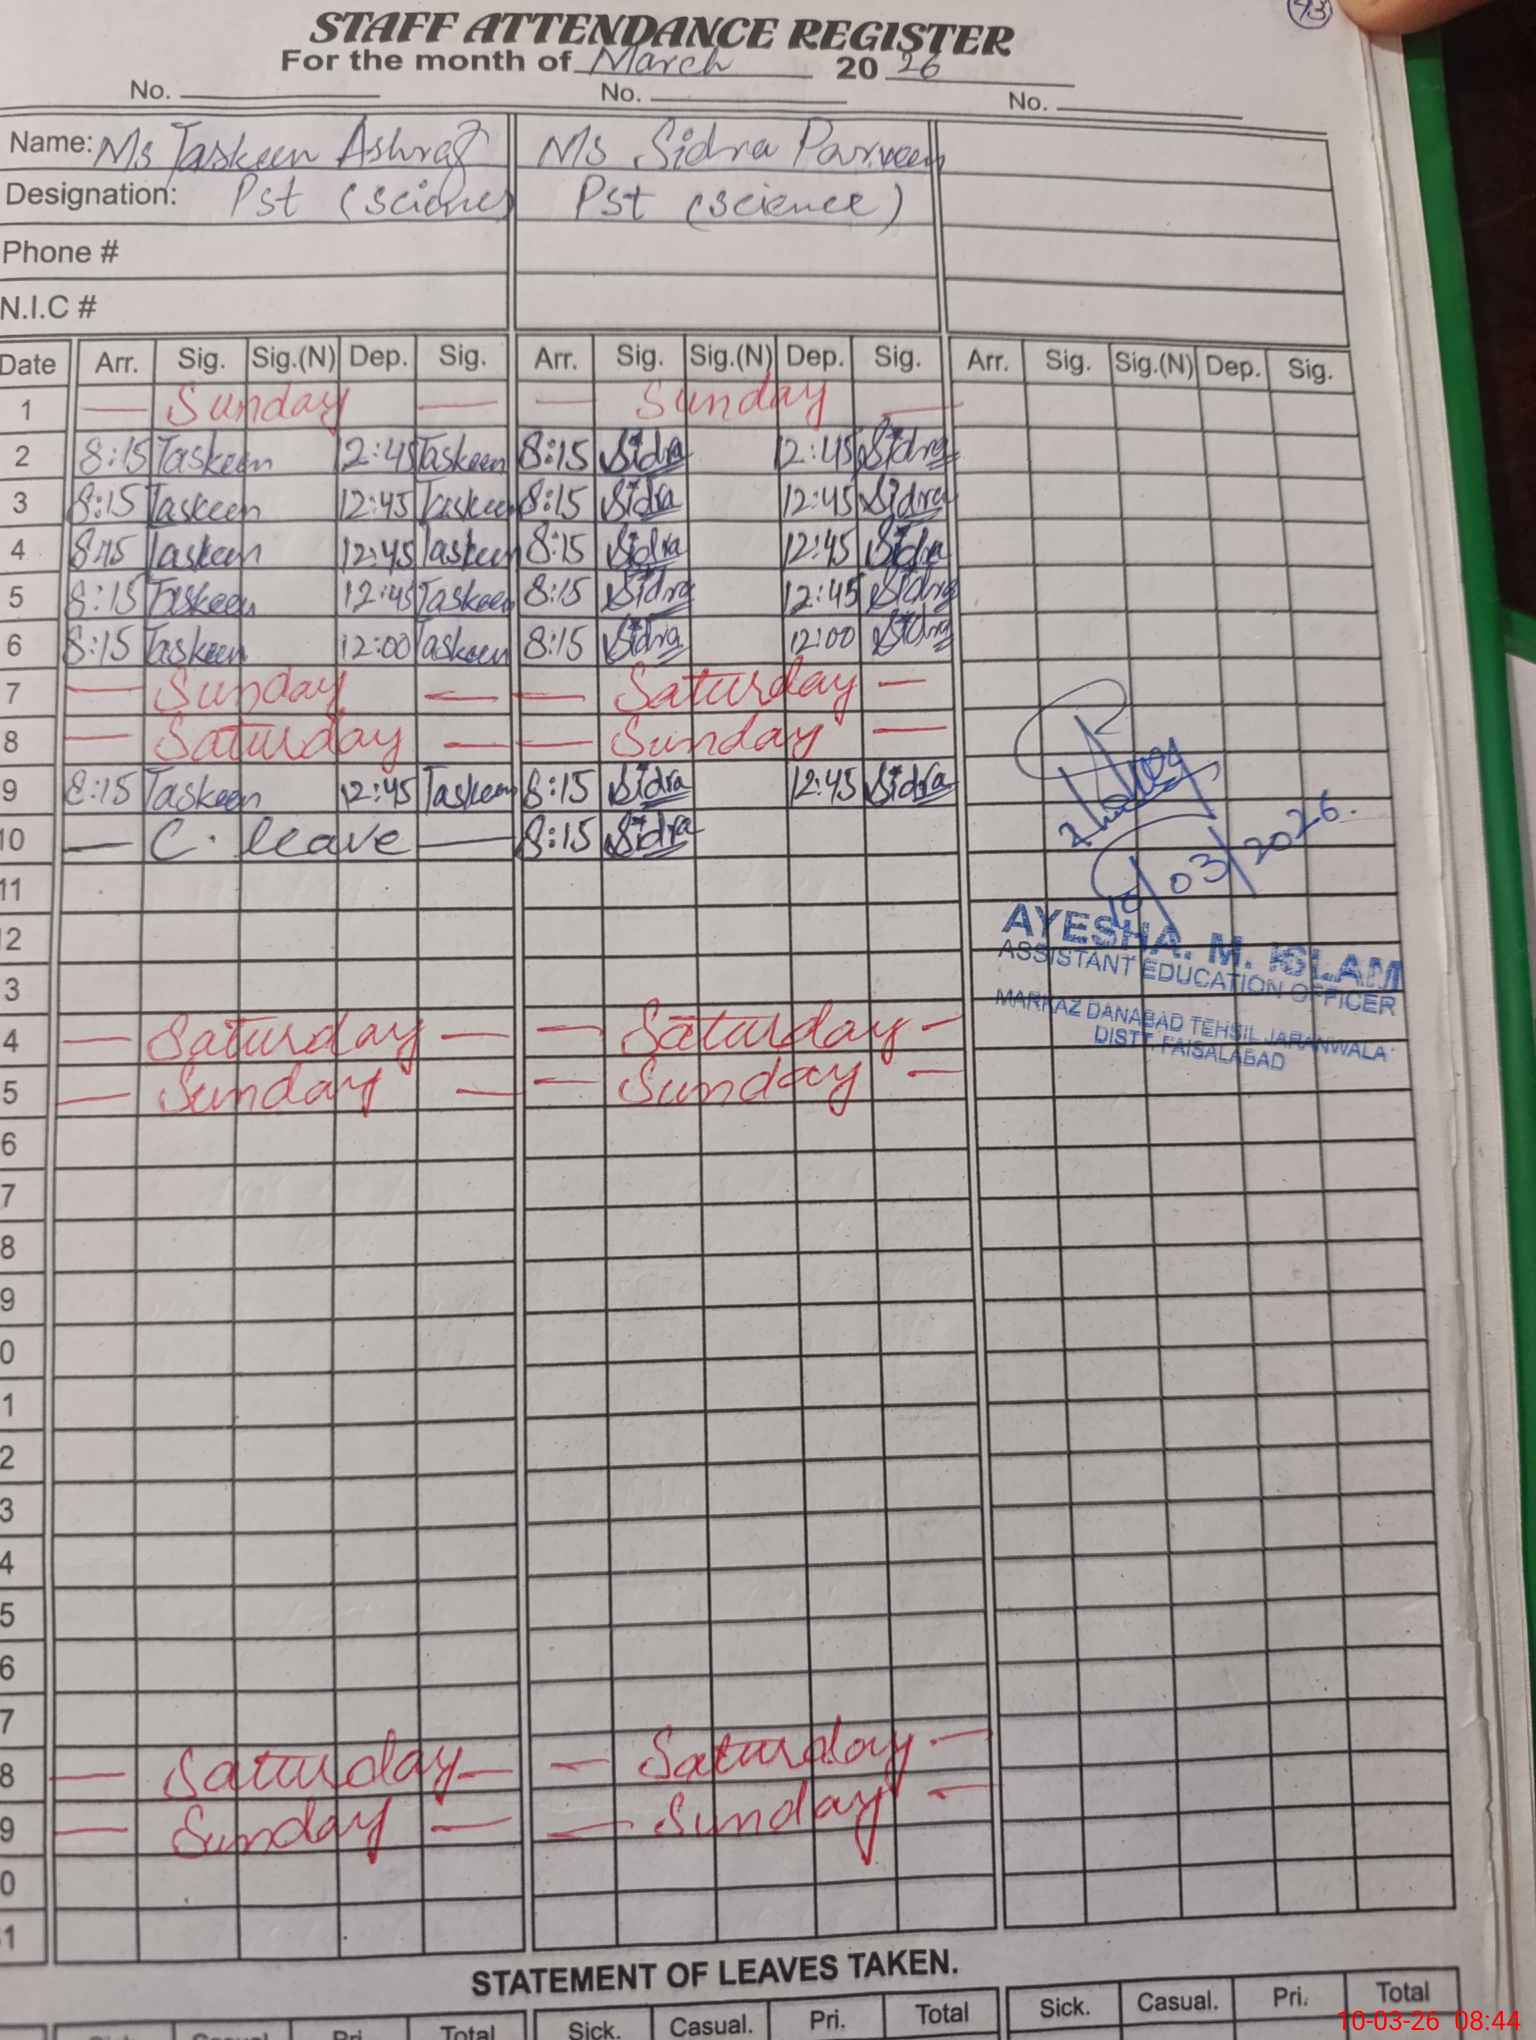 93
STAFF ATTENDANCE REGISTER
For the month of March 2026
No. No. No.
Name: Ms Taskeen Ashraf Ms Sidra Parveen
Designation: Pst (science Pst (science)
Phone #
N.I.C #
Date Arr. Sig. Sig.(N) Dep. Sig. Arr. Sig. Sig.(N) Dep. Sig. Arr. Sig. Sig.(N) Dep. Sig.
1 — Sunday — — Sunday —
2 8:15 Taskeen 12:45 Taskeen 8:15 Sidra 12:45 Sidra
3 8:15 Taskeen 12:45 Taskeen 8:15 Sidra 12:45 Sidra
4 8:15 Taskeen 12:45 Taskeen 8:15 Sidra 12:45 Sidra
5 8:15 Taskeen 12:45 Taskeen 8:15 Sidra 12:45 Sidra
6 8:15 Taskeen 12:00 Taskeen 8:15 Sidra 12:00 Sidra
7 — Sunday — — Saturday —
8 — Saturday — — Sunday —
9 8:15 Taskeen 12:45 Taskeen 8:15 Sidra 12:45 Sidra
10 — C. leave — 8:15 Sidra
10/03/2026.
11
AYESHA. M. ISLAM
ASSISTANT EDUCATION OFFICER
MARKAZ DANABAD TEHSIL JARANWALA
DISTT. FAISALABAD
2
3
4 — Saturday — — Saturday —
5 — Sunday — — Sunday —
6
7
8
9
0
1
2
3
4
5
6
7
8 — Saturday — — Saturday —
9 — Sunday — — Sunday —
0
1
STATEMENT OF LEAVES TAKEN.
Sick. Casual. Pri. Total Sick. Casual. Pri. Total Sick. Casual. Pri. Total
10-03-26 08:44